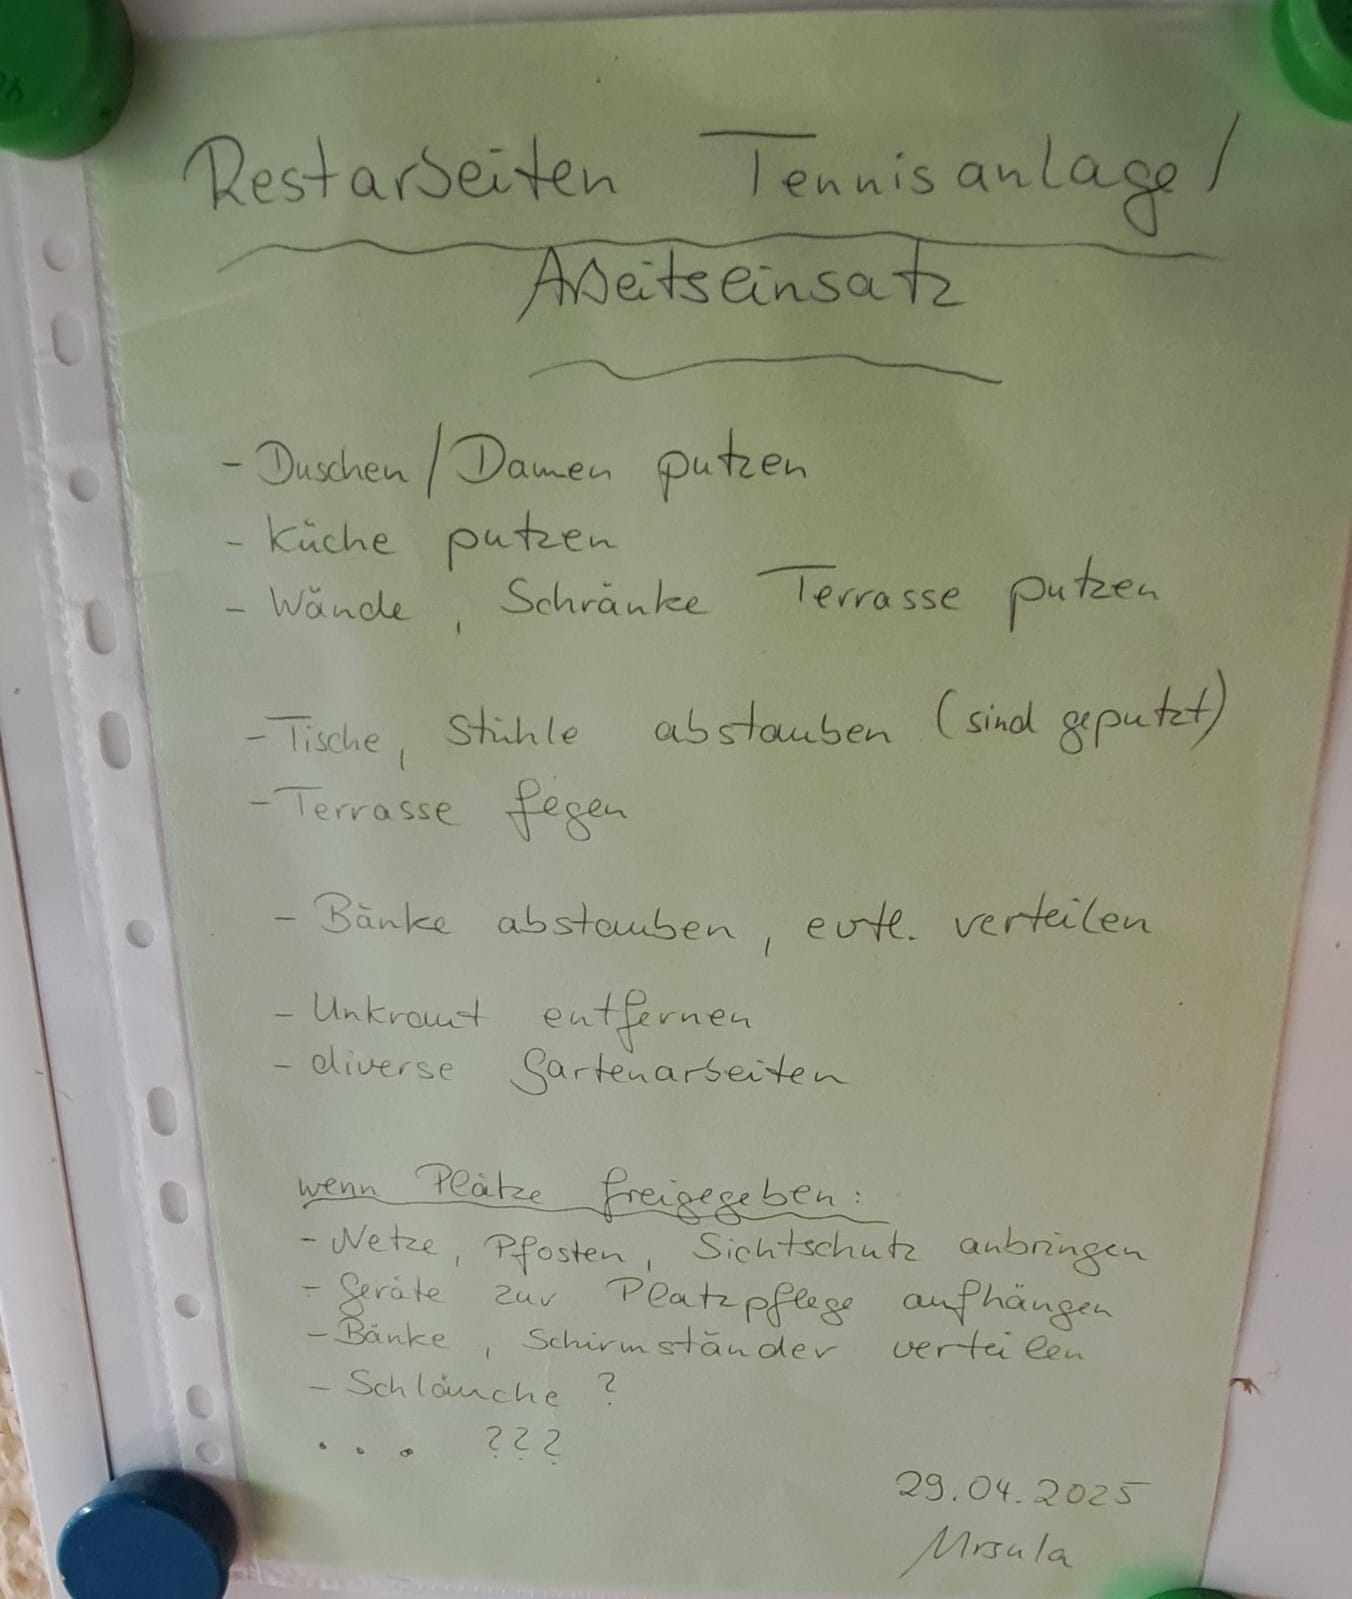 Restarbeiten Tennisanlage/
Arbeitseinsatz
- Duschen/Damen putzen
- Küche putzen
- Wände, Schränke Terrasse putzen
- Tische, Stühle abstauben (sind geputzt)
- Terrasse fegen
- Bänke abstauben, evtl. verteilen
- Unkraut entfernen
- diverse Gartenarbeiten
wenn Plätze freigegeben:
- Netze, Pfosten, Sichtschutz anbringen
- Geräte zur Platzpflege aufhängen
- Bänke, Schirmständer verteilen
- Schläuche ?
... ???
29.04.2025
Ursula